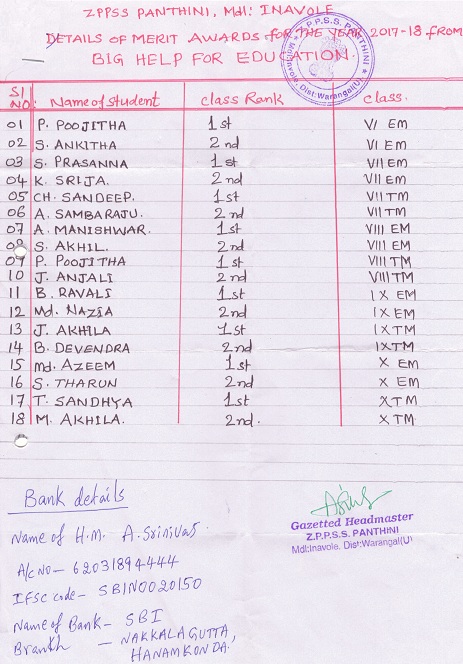 ZPPSS PANTHINI, Mdl: INAVOLE
DETAILS OF MERIT AWARDS FOR THE YEAR 2017-18 FROM
BIG HELP FOR EDUCATION.
Z.P.P.S.S. PANTHINI
Mdl:Inavole, Dist:Warangal(U)
Sl NO: Name of student class Rank class.
01 P. POOJITHA 1st VI EM
02 S. ANKITHA 2nd VI EM
03 S. PRASANNA 1st VII EM
04 K. SRIJA. 2nd VII EM
05 CH. SANDEEP. 1st VII TM
06 A. SAMBARAJU. 2nd VII TM
07 A. MANISHWAR. 1st VIII EM
08 S. AKHIL. 2nd VIII EM
09 P. POOJITHA 1st VIII TM
10 J. ANJALI 2nd VIII TM
11 B. RAVALI 1st IX EM
12 Md. NAZIA 2nd IX EM
13 J. AKHILA 1st IX TM
14 B. DEVENDRA 2nd IX TM
15 Md. AZEEM 1st X EM
16 S. THARUN 2nd X EM
17 T. SANDHYA 1st X TM
18 M. AKHILA. 2nd. X TM
Bank details
Name of H.M. A. Srinivas.
A/c No- 62031894444
IFSC code- SBIN0020150
Name of Bank- SBI
Branch - NAKKALAGUTTA,
HANAMKONDA.
Gazetted Headmaster
Z.P.P.S.S. PANTHINI
Mdl:Inavole, Dist:Warangal(U)